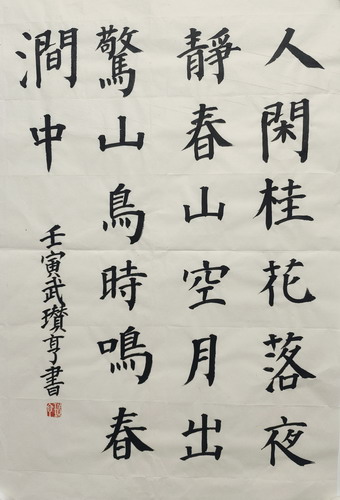 人閑桂花落夜
靜春山空月出
驚山鳥時鳴春
澗中
壬寅武瓚亨書